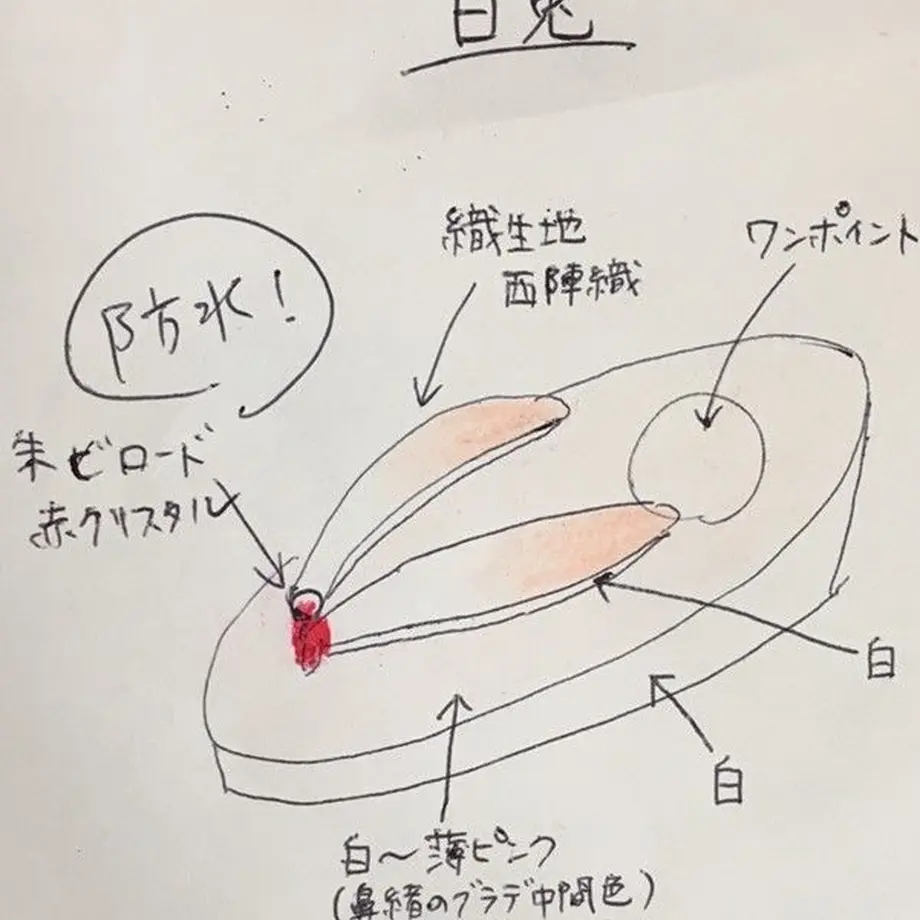 白兎
織生地
西陣織
ワンポイント
防水！
朱ビロード
赤クリスタル
白
白
白～薄ピンク
（鼻緒のグラデ中間色）